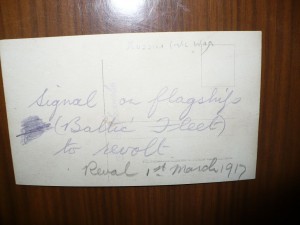 Signal on flagships
(Baltic Fleet)
to revolt
Reval 1st March 1917